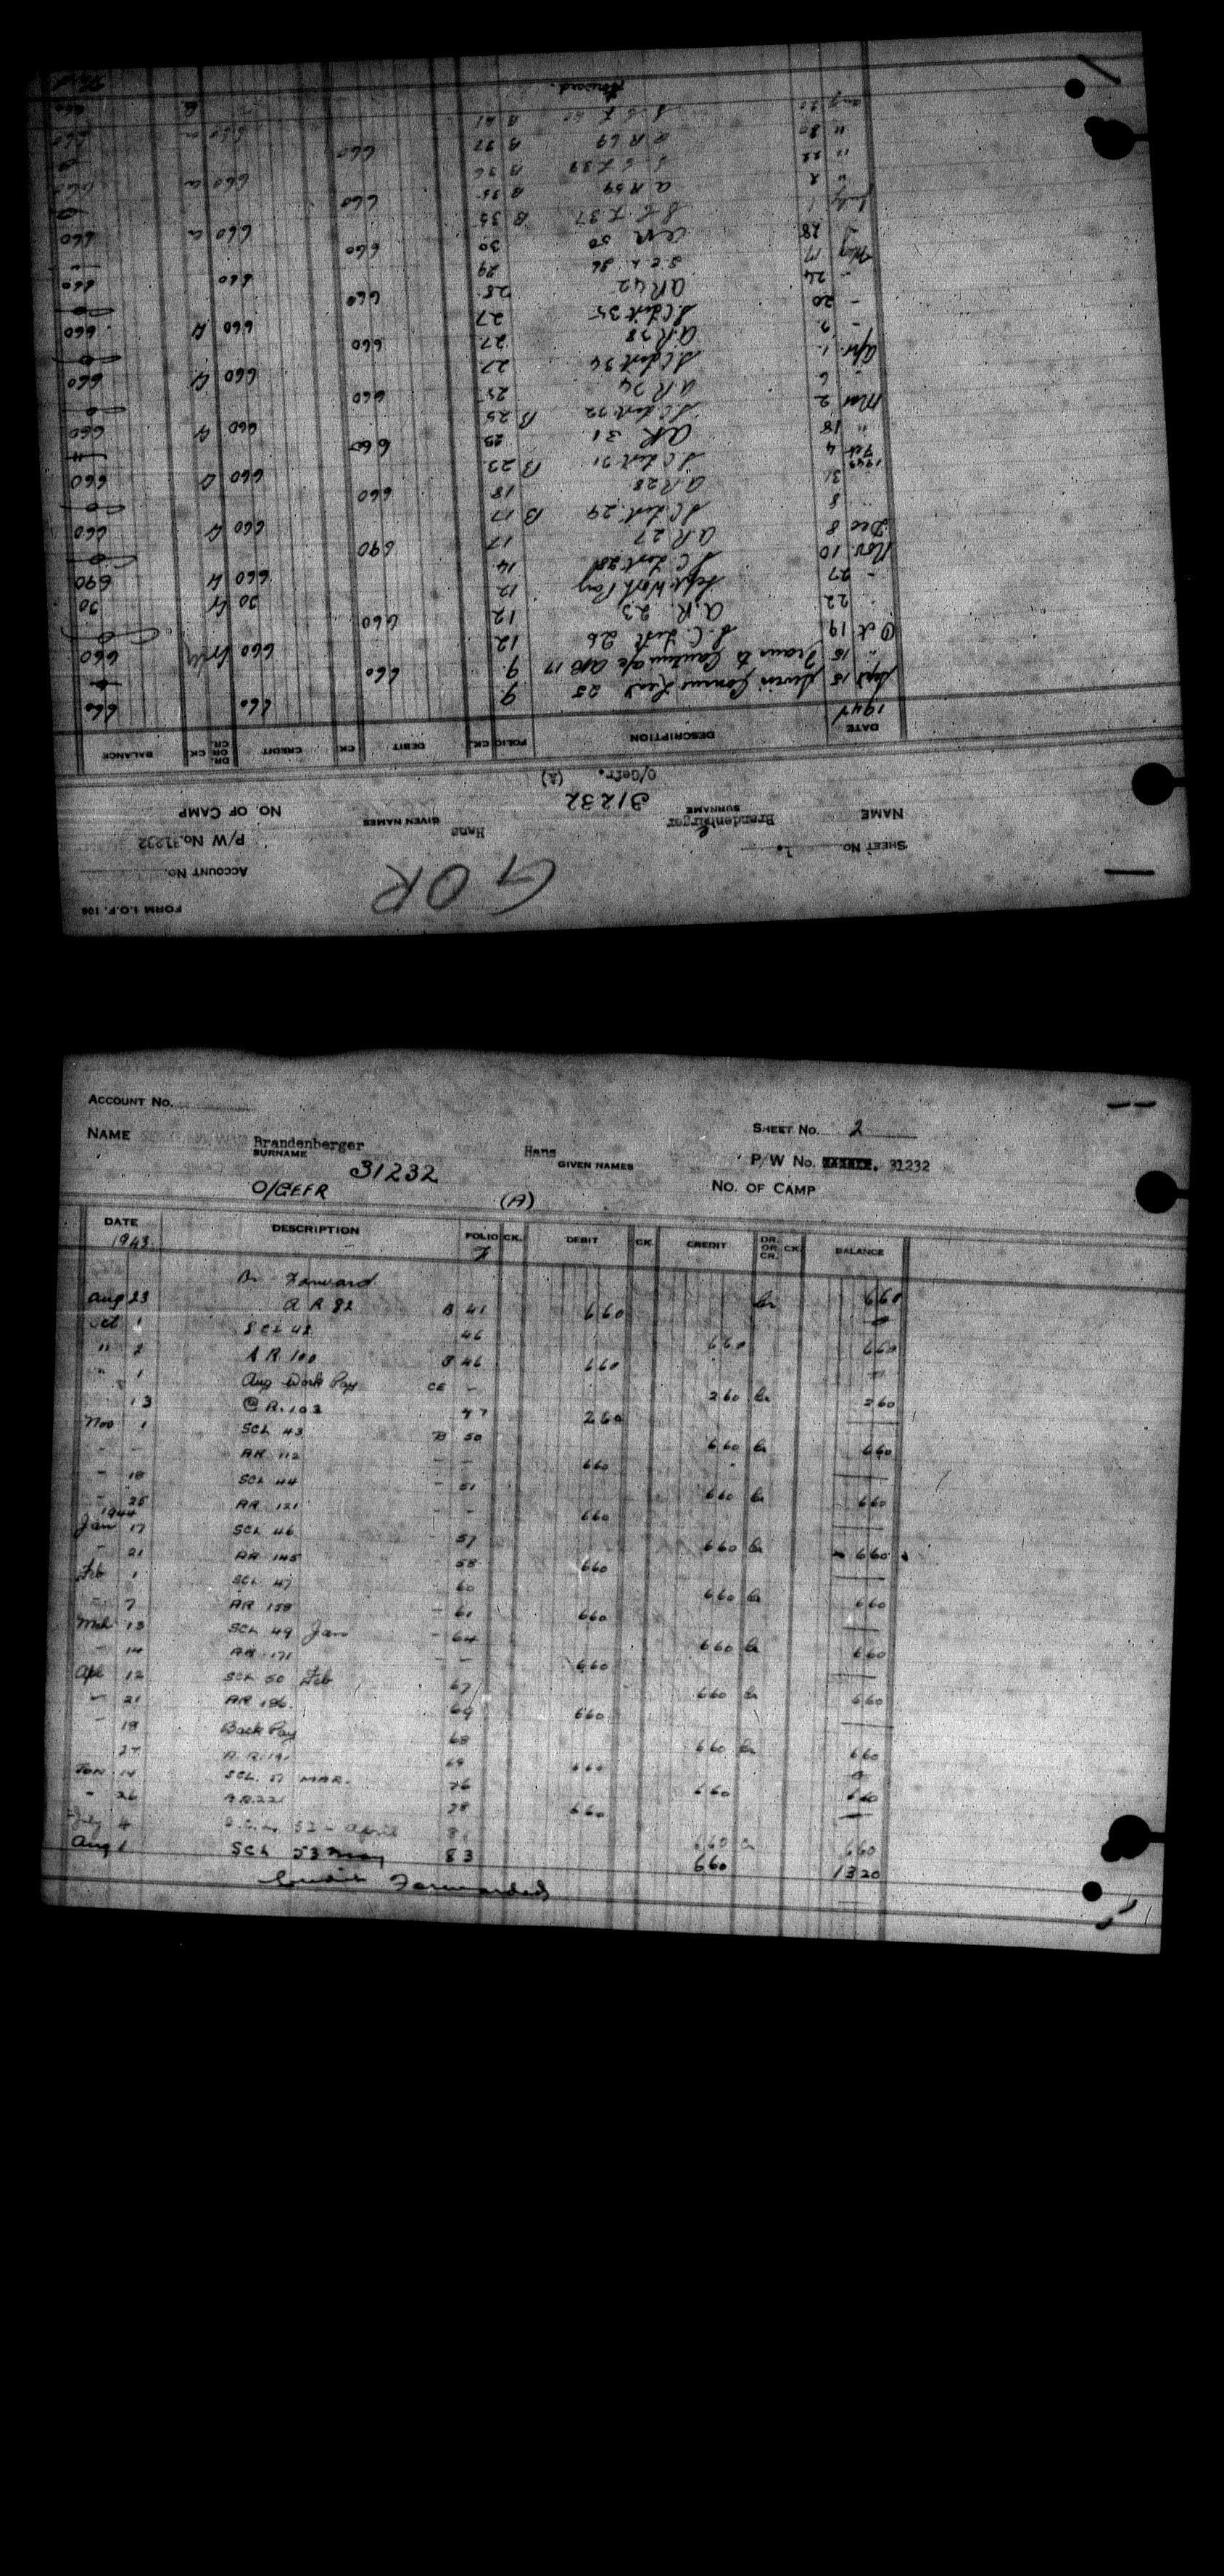 FORM I.O.F. 108
ACCOUNT No.
GOR
SHEET No. 1.
P/W No. 31232
NAME Brandenbirger Hans
SURNAME GIVEN NAMES NO. OF CAMP
31232
O/Gefr. (A)
DATE DESCRIPTION FOLIO CK. DEBIT CK. CREDIT DR. OR CR. CK. BALANCE
Sept 15 25 9 660 660
" 15 Drawn to Canteen a/c AR 17 9 660
Oct 19 S.C. List 26 12 660 660
22 A.R. 23 12 660
- 27 Sept. Work Pay 12 30 30
Nov 10 S C List 28 14 660 690
Dec 8 A R 27 17 690
8 S C List 29 B 17 660 660
31 A R 28 18 660
Feb 4 S C List 31 B 23 660 660
" 18 A R 31 25 660
Mar 2 S C List 32 B 25 660 660
- 6 A R 34 25 660
Apr. 1. S C List 34 27 660 660
- 2 A.R 38 27 660
- 20 S.C List 35 27 660 660
- 24 A R 42 28 660
May 17 S.C.L. 36 29 660 660
" 28 A R 50 30 660
July 1 S C L 37 B 35 660 660
" 2 A R 59 B 35 660
" 22 S C L 39 B 36 660
" 30 A R 69 B 37 660
Aug 20 S C L B 41 660
Forward.
ACCOUNT No.
SHEET No. 2
NAME Brandenberger Hans
SURNAME GIVEN NAMES P/W No. 31232
31232
O/GEFR (A) NO. OF CAMP
DATE DESCRIPTION FOLIO CK. DEBIT CK. CREDIT DR. OR CR. CK. BALANCE
1943
Forward Cr 660
Aug 23 A R 82 B 41 660
Oct 1 SCL 42 46 660 660
" 2 A R 100 B 46 660
" 1 Aug Work Pay CE - 260 Cr 260
13 A.R. 103 47 260
Nov 1 SCL 43 B 50 660 Cr 660
- - AR 112 - - 660
- 18 SCL 44 - 51 660 Cr 660
- 25 AR 121 - - 660
1944
Jan 17 SCL 46 - 57 660 Cr 660
- 21 AR 145 - 58 660
Feb 1 SCL 47 - 60 660 Cr 660
- 7 AR 158 - 61 660
Mch 13 SCL 49 Jan - 64 660 Cr 660
- 14 AR 171 - - 660
Apl 12 SCL 50 Feb 67 660 Cr 660
- 21 AR 186. 69 660
- 18 Back Pay 68 660 Cr 660
27 A.R. 191 69 660
Jun 14 SCL. 51 MAR. 76 660 660
- 26 A.R. 221 78 660
July 4 S.C.L. 52 - April 81 660 Cr 660
Aug 1 SCL 53 May 83 660 1320
Forwarded